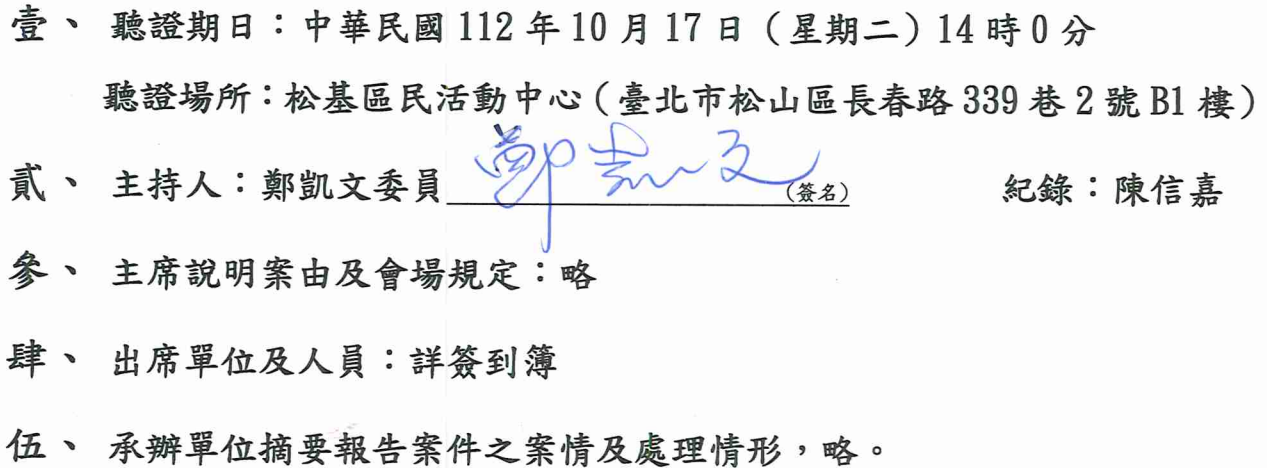 壹、 聽證期日：中華民國 112 年 10 月 17 日（星期二）14 時 0 分
聽證場所：松基區民活動中心（臺北市松山區長春路 339 巷 2 號 B1 樓）
貳、 主持人：鄭凱文委員 鄭凱文 (簽名) 紀錄：陳信嘉
參、 主席說明案由及會場規定：略
肆、 出席單位及人員：詳簽到簿
伍、 承辦單位摘要報告案件之案情及處理情形，略。